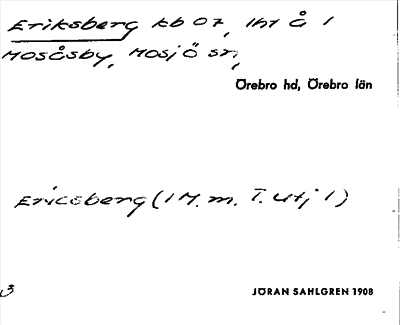 Eriksberg kb 07, 1ht å 1
Mosåsby, Mosjö sn,
Örebro hd, Örebro län
Ericsberg (1 M. m. T. utj 1)
3
JÖRAN SAHLGREN 1908